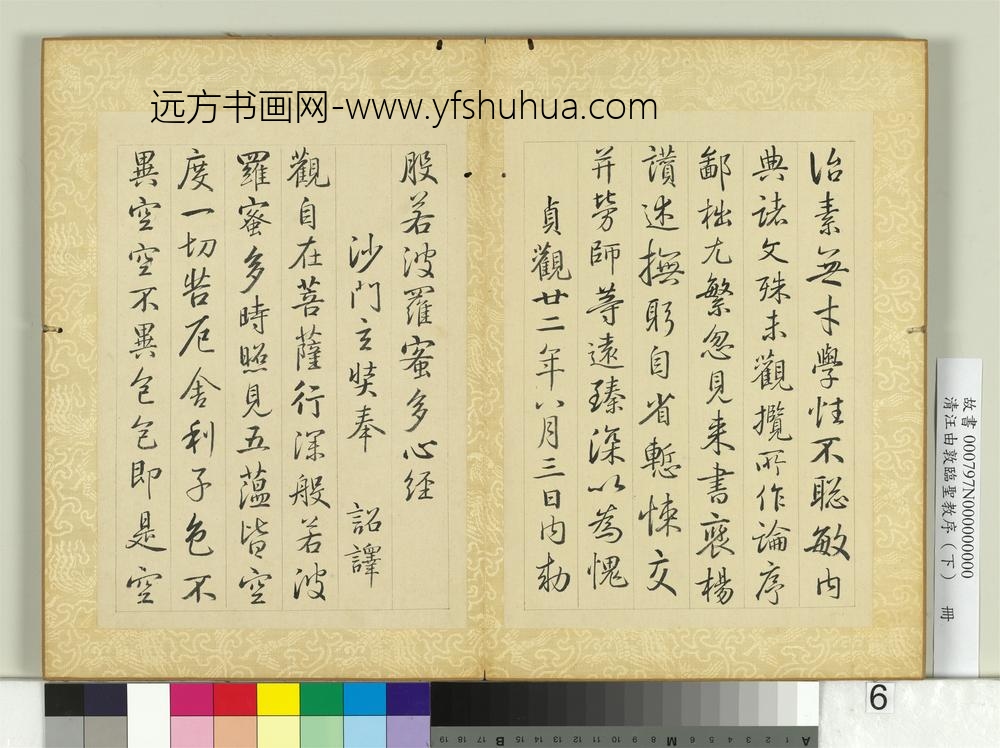 远方书画网-www.yfshuhua.com
治素無才學性不聪敏内
典諸文殊未觀攬所作論序
鄙拙尤繁忽見来書褒楊
讃述撫躬自省慙悚交
并勞師等遠臻深以為愧
貞觀廿二年八月三日内勅
般若波羅蜜多心经
沙門玄奘奉 詔譯
觀自在菩薩行深般若波
羅蜜多時照見五蕴皆空
度一切苦厄舍利子色不
異空空不異色色即是空
故書 000797N000000000
清汪由敦臨聖教序(下) 冊
6